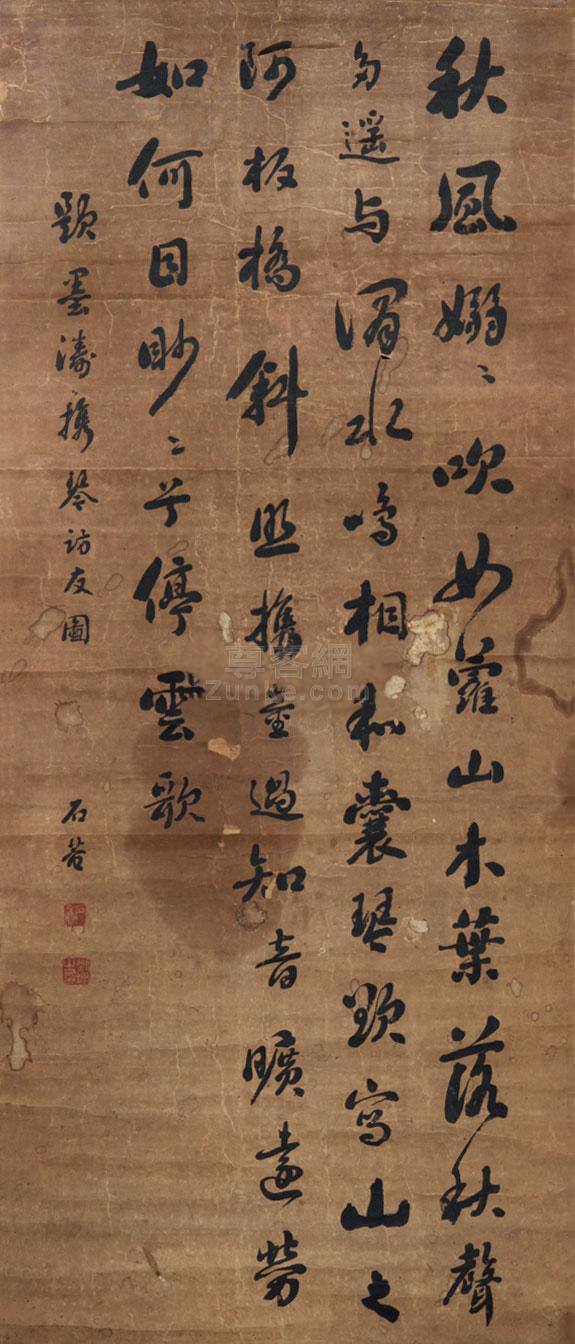 秋風嫋〻吹女蘿山木葉落秋聲
多遥与澗水鳴相和囊琴欲寫山之
阿板橋斜照攜童過知音曠遠勞
如何目眇〻兮停雲歌
題墨濤攜琴訪友圖 石菴
尊客網
Zunke.com